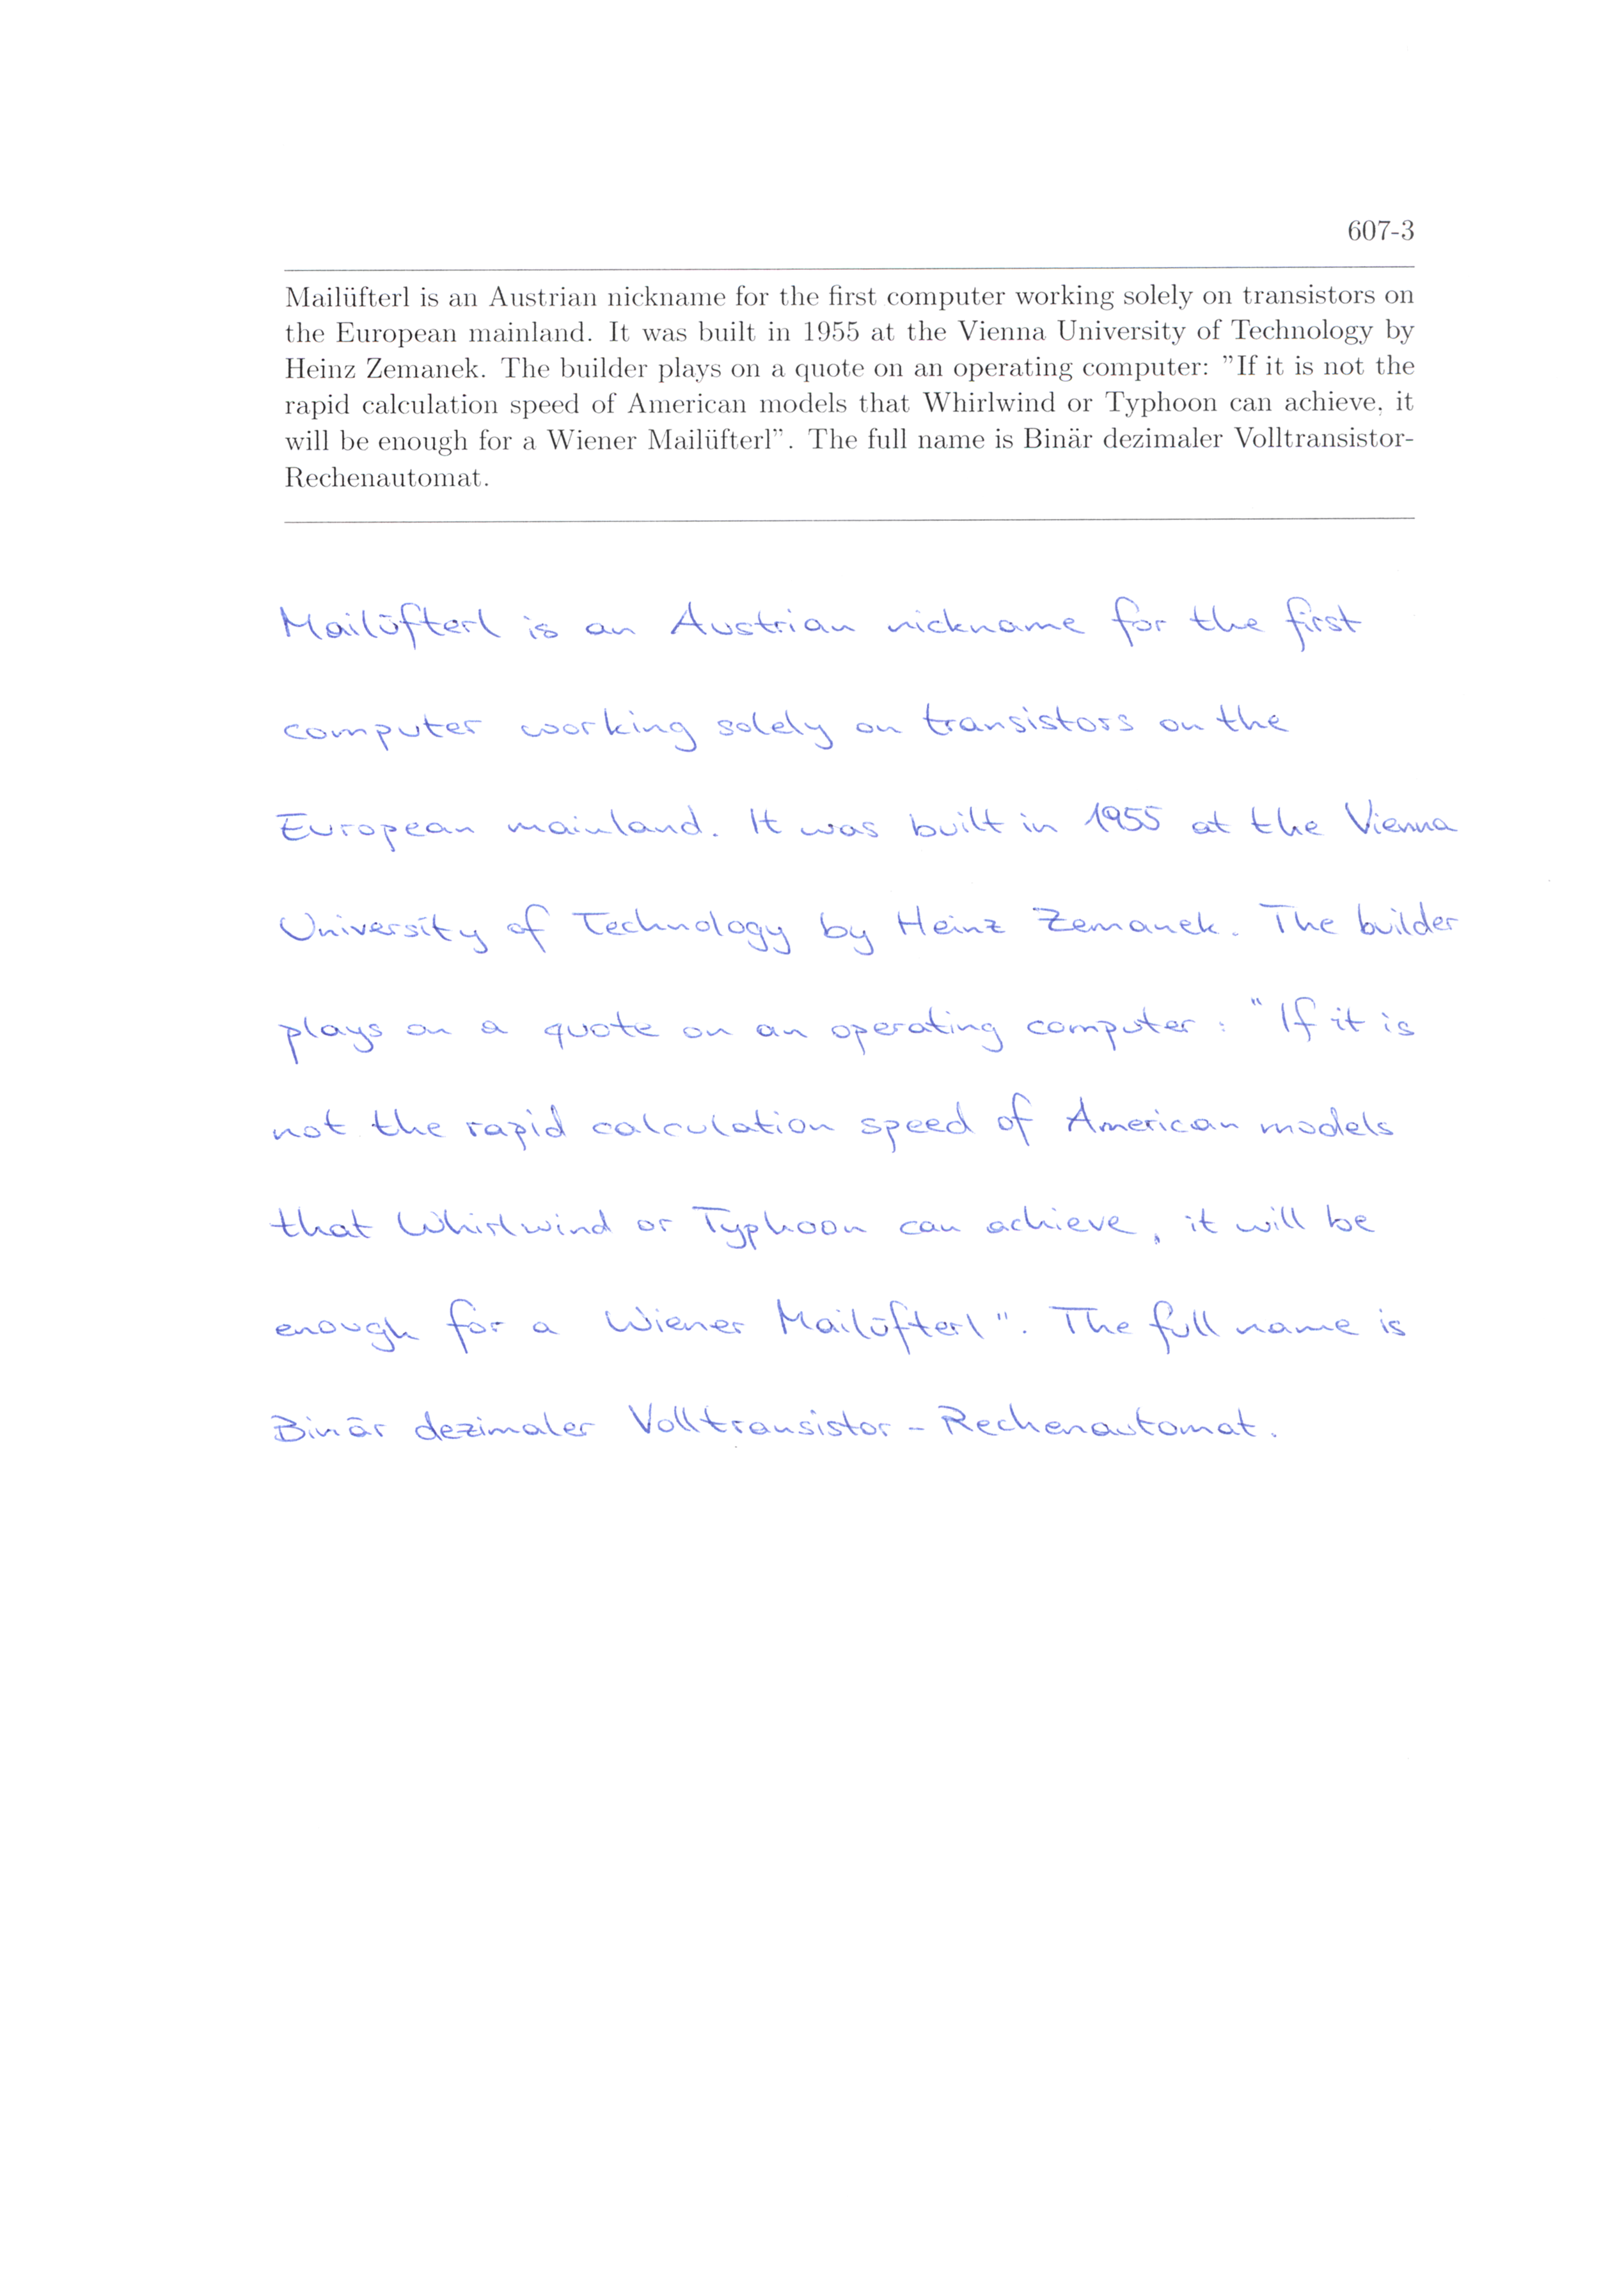 607-3
Mailüfterl is an Austrian nickname for the first computer working solely on transistors on
the European mainland. It was built in 1955 at the Vienna University of Technology by
Heinz Zemanek. The builder plays on a quote on an operating computer: "If it is not the
rapid calculation speed of American models that Whirlwind or Typhoon can achieve, it
will be enough for a Wiener Mailüfterl". The full name is Binär dezimaler Volltransistor-
Rechenautomat.
Mailüfterl is an Austrian nickname for the first
computer working solely on transistors on the
European mainland. It was built in 1955 at the Vienna
University of Technology by Heinz Zemanek. The builder
plays on a quote on an operating computer : "If it is
not the rapid calculation speed of American models
that Whirlwind or Typhoon can achieve, it will be
enough for a Wiener Mailüfterl". The full name is
Binär dezimaler Volltransistor - Rechenautomat.